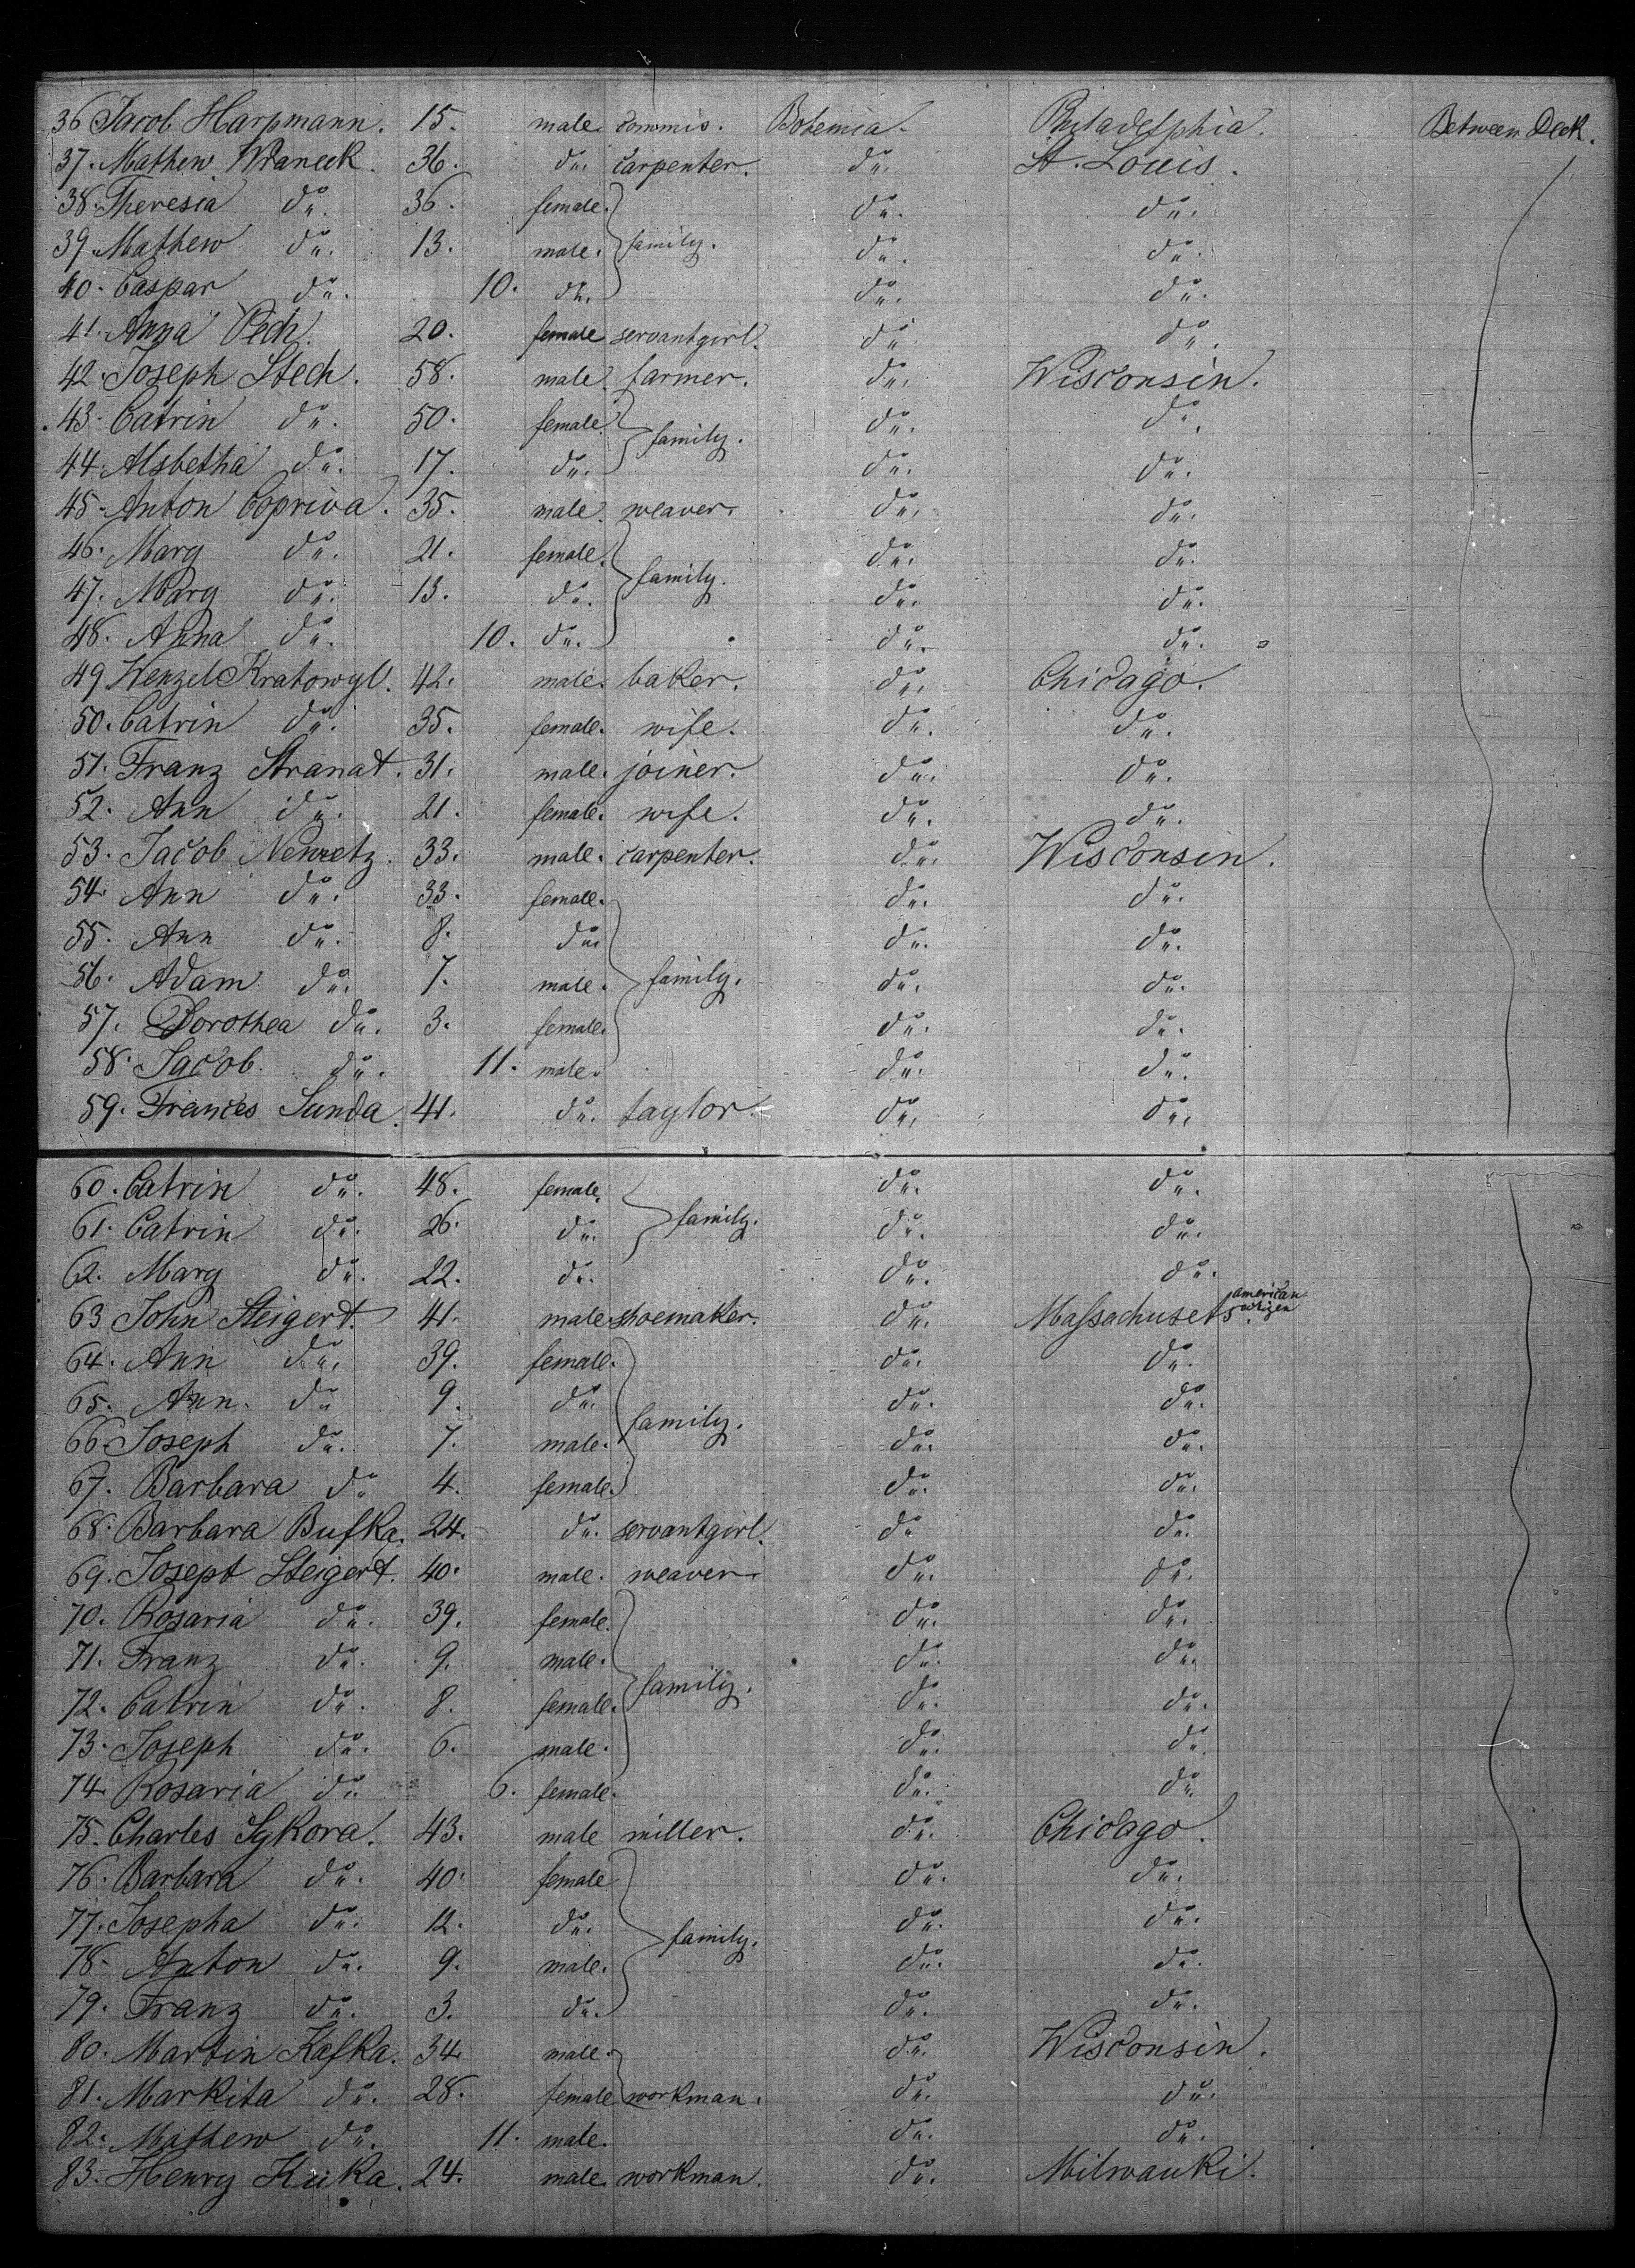 36 Jacob Harpmann. 15. male commis. Bohemia. Philadelphia. Between Deck.
37. Mathew Wraneck. 36. do. carpenter. do. St. Louis.
38. Theresia do. 36. female. do. do.
39. Mathew do. 13. male. family. do. do.
40. Caspar do. 10. do. do. do.
41. Anna Pech. 20. female servantgirl. do. do.
42. Joseph Stech. 58. male. farmer. do. Wisconsin.
43. Catrin do. 50. female. family. do. do.
44. Alsbetha do. 17. do. do. do.
45. Anton Copriva. 35. male. weaver. do. do.
46. Mary do. 21. female. do. do.
47. Mary do. 13. do. family. do. do.
48. Anna do. 10. do. do. do.
49 Wenzel Kratowyl. 42. male. baker. do. Chicago.
50. Catrin do. 35. female. wife. do. do.
51. Franz Stranat. 31. male. joiner. do. do.
52. Ann do. 21. female. wife. do. do.
53. Jacob Nemetz. 33. male. carpenter. do. Wisconsin.
54. Ann do. 33. female. do. do.
55. Ann do. 8. do. do. do.
56. Adam do. 7. male. family. do. do.
57. Dorothea do. 3. female. do. do.
58. Jacob. do. 11. male. do. do.
59. Frances Sunda. 41. do. taylor. do. do.
60. Catrin do. 48. female. do. do.
61. Catrin do. 26. do. family. do. do.
62. Mary do. 22. do. do. do.
63 John Steigert. 41. male. shoemaker. do. Massachusets. american
64. Ann do. 39. female. do. do.
65. Ann. do 9. do. do. do.
66. Joseph do. 7. male. family. do. do.
67. Barbara do 4. female. do. do.
68. Barbara Bufka. 24. do. servantgirl. do do.
69. Josept Steigert. 40. male. weaver. do. do.
70. Rosaria do. 39. female. do. do.
71. Franz do. 9. male. do. do.
72. Catrin do. 8. female. family. do. do.
73. Joseph do. 6. male. do. do
74. Rosaria do. 6. female. do. do.
75. Charles Sykora. 43. male miller. do. Chicago.
76. Barbara do. 40. female do. do.
77. Josepha do. 12. do. family. do. do.
78. Anton do. 9. male. do. do.
79. Franz do. 3. do. do. do.
80. Martin Kafka. 34 male. do. Wisconsin.
81. Markita do. 28. female workman. do. do.
82. Mathew do. 11. male. do. do.
83. Henry Kuka. 24. male workman. do. Milwauki.